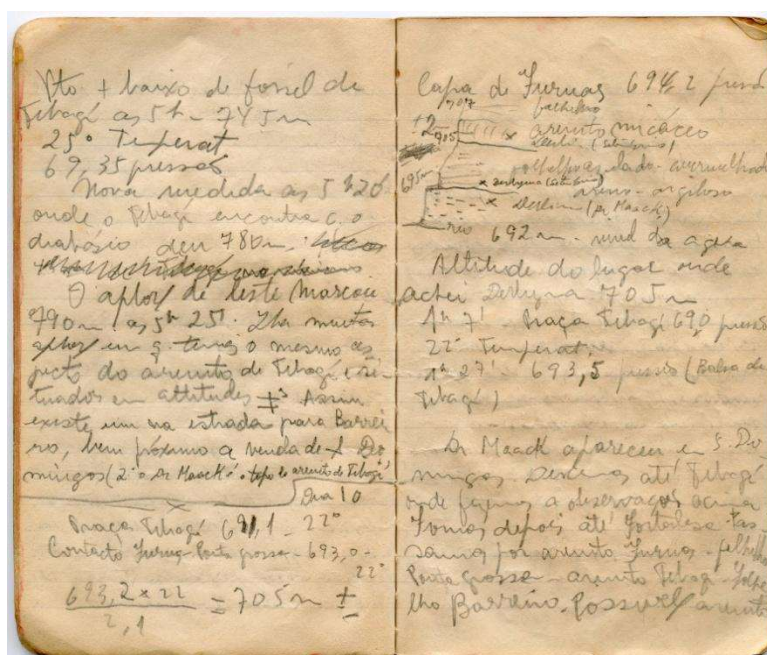 Pto + baixo de fossil de
Tibagí as 5h - 745m
25° Temperat
69,35 pressão
Nova medida as 5h20
onde o Tibagí encontra c. o
diabásio deu 780m.
O aflor/ de leste marcou
790m as 5h 25'. Ha muitos
aflor/ em q. temos o mesmo as
pecto do arenito de Tibagí e si
tuados em altitudes ± Assim
existe um na estrada para Barrei
ro, bem próximo a venda de S. Do
mingos (2° o Dr Maack é o topo do arenito de Tibagí)
Dia 10
Praça Tibagí 691,1 - 22°
Contacto Furnas-Ponta grossa - 693,0 -
22°
693,2 x 22 = 705m ±
2,1
Capa de Furnas 694,2 pressão
707 folhelho
±2 705 x arenito micáceo
695m
x (Dr. Maack)
rio 692m - nivel da agua
Altitude do lugar onde
achei 705m
1h 7' Praça Tibagí 690 pressão
22° Temperat
1h 27' 693,5 pressão (Balsa de
Tibagí)
Dr Maack apareceu em S. Do
mingos. Descemos até Tibagí
onde fizemos a observação acima
Fomos depois até Fortaleza. Pas
samos por arenito Furnas - folhelho
Ponta grossa - arenito Tibagí - folhe
lho Barreiro. Possivel/ arenito